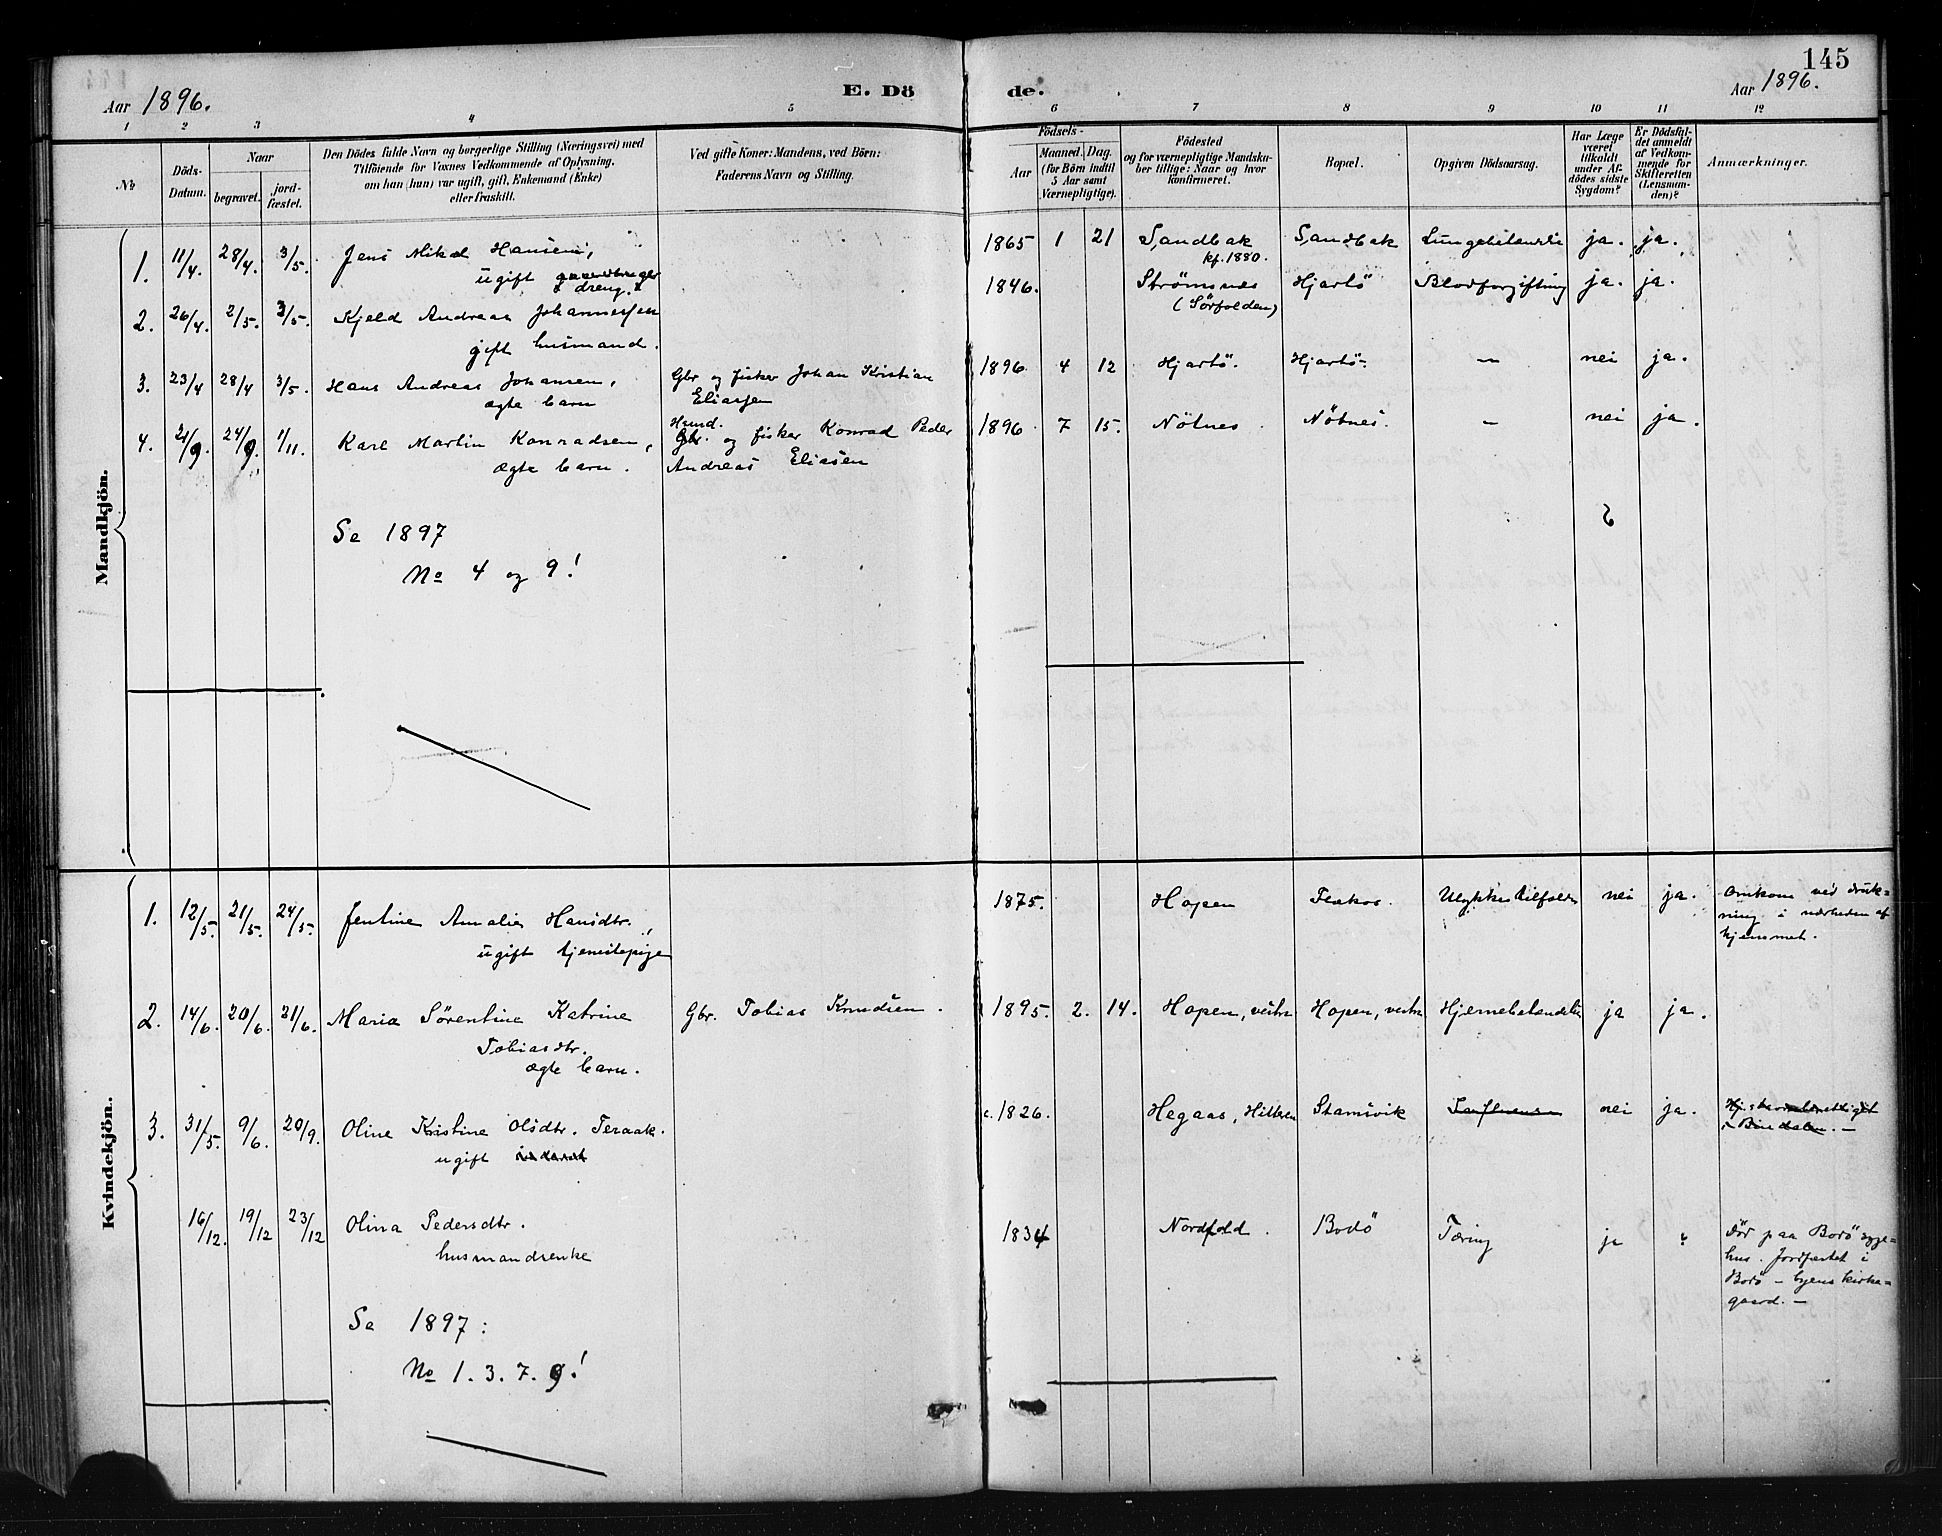 145
Aar 1896.
E. Dö
de.
Aar 1896.
1 2 3 4 5 6 7 8 9 10 11 12
No
Döds-Datum.
Naar
begravet.
jord-fæstet.
Den Dödes fulde Navn og borgerlige Stilling (Næringsvei) med
Tilföiende for Voxnes Vedkommende af Oplysning,
om han (hun) var ugift, gift, Enkemand (Enke)
eller fraskilt.
Ved gifte Koner: Mandens, ved Börn:
Faderens Navn og Stilling.
Födsels-
Aar
Maaned. Dag.
(for Börn indtil
5 Aar samt
Værnepligtige).
Födested
og for værnepligtige Mandska-
ber tillige: Naar og hvor
konfirmeret.
Bopæl.
Opgiven Dödsaarsag.
Har Læge
været
tilkaldt
under Af-
dödes sidste
Sygdom?
Er Dödsfal-
det anmeldt
af Vedkom-
mende for
Skifteretten
(Lensman-
den)?
Anmærkninger.
Mandkjön.
1. 11/4. 28/4. 3/5. Jens Mikal Hansen, 1865 1 21 Sandbak Sandbak ja. ja.
ugift
dreng.
kf. 1880.
2. 26/4. 2/5. 3/5. Kjeld Andreas Johannessen 1846. Strömsnes Hjartö Blodforgiftning ja. ja.
gift husmand.
(Sörfolden)
3. 23/4 28/4 3/5. Hans Andreas Johansen, Gbr og fisker Johan Kristian 1896 4 12 Hjartö. Hjartö. — nei ja.
ægte barn
Eliassen
4. 21/9. 24/9. 1/11. Karl Martin Konradsen, Gbr. og fisker Konrad Peder 1896 7 15. Nötnes. Nötnes. — nei ja.
ægte barn. Andreas Eliasen
Se 1897
No 4 og 9!
Kvindekjön.
1. 12/5. 21/5. 24/5. Jentine Amalie Hansdtr., 1875. Hopen nei ja. Omkom ved druk-
ugift tjenestepige
ning i nærheden af
hjemmet.
2. 14/6. 20/6. 21/6. Maria Sörentine Katrine Gbr. Tobias Knudsen. 1895. 2. 14. Hopen, vestre Hopen, vestre ja ja.
Tobiasdtr.
ægte barn.
3. 31/5. 9/6. 20/9. Oline Kristine Olsdtr. Teraak. c. 1826. Hegaas, Hitteren Stamsvik nei ja.
ugift
i Bindalen. —
16/12. 19/12 23/12 Olina Pedersdtr. 1834 Nordfold. Bodö Tæring ja ? Död paa Bodö syge-
husmandsenke
hus. Jordfæstet i
Bodö — byens kirke-
gaard. —
Se 1897:
No 1. 3. 7. 9!